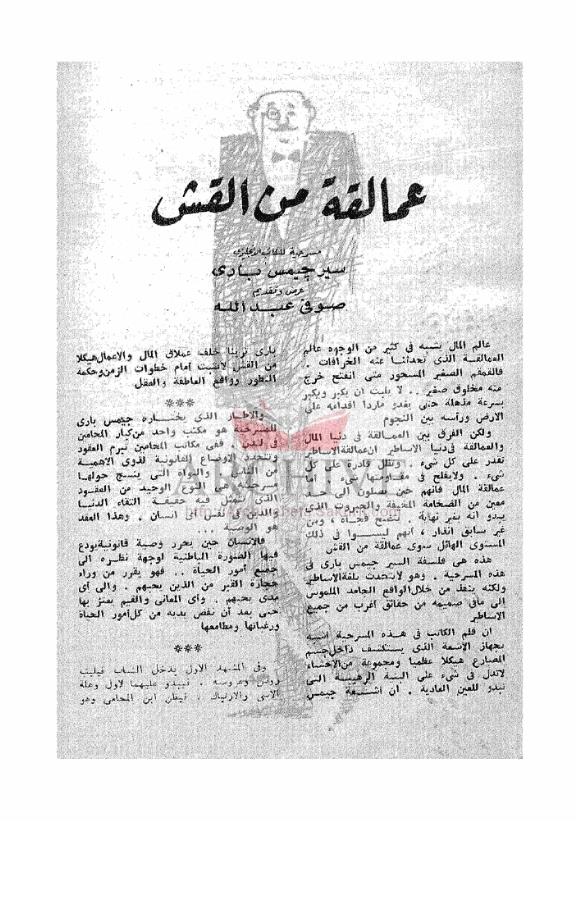 عمالقة من القش
مسرحية للكاتب الانجليزى
سير جيمس بارى
عرض وتقديم
صوفى عبد الله
عالم المال يشبه فى كثير من الوجوه عالم
العمالقة الذى تحدثنا عنه الخرافات .
فالقمقم الصغير المسحور متى انفتح خرج
منه مخلوق صغير .. لا يلبث ان يكبر ويكبر
بسرعة مذهلة حتى يغدو ماردا اقدامه على
الارض ورأسه بين النجوم
ولكن الفرق بين العمالقة فى دنيا المال
والعمالقة فى دنيا الاساطير ان عمالقة الاساطير
تقدر على كل شىء . وتظل قادرة على كل
شىء . ولا يفلح فى مقاومتها شىء . أما
عمالقة المال فانهم حين يصلون الى
معين من الضخامة المخيفة والجبروت الذى
يبدو انه بغير نهاية . تنفتح فجأة ، ومن
غير سابق انذار ، انهم ليسوا فى ذلك
المستوى الهائل سوى عمالقة من القش
هذه هى فلسفة السير جيمس بارى فى
هذه المسرحية . وهو لا يتحدث بلغة الاساطير
ولكنه ينفذ من خلال الواقع الجامد الملموس
إلى ما فى صميمه من حقائق أغرب من جميع
الاساطير
ان قلم الكاتب فى هذه المسرحية اشبه
بجهاز الاشعة الذى يستكشف داخل جسم
المصارع هيكلا عظميا ومجموعة من الاحشاء
لا تدل فى شىء على البنية الرهيبة التى
تبدو للعين العادية . ان اشعة جيمس
بارى ترينا خلف عملاق المال والاعمال هيكلا
من القش لا يثبت أمام خطوات الزمن وحكمة
التطور وواقع العاطفة والعقل
***
والاطار الذى يختاره جيمس بارى
للمسرحية هو مكتب واحد من كبار المحامين
فى لندن . ففى مكاتب المحامين تبرم العقود
وتتحدد الاوضاع القانونية لذوى الاهمية
من الناس . والنواة التى ينسج حولها
مسرحيته هى النوع الوحيد من العقود
الذى تتمثل فيه حقيقة التقاء الدنيا
والدين فى نفس أى انسان . وهذا العقد
هو الوصية ..
فالانسان حين يحرر وصية قانونية يودع
فيها الصورة الباطنية لوجهة نظره الى
جميع أمور الحياة .. فهو يقرر من وراء
حجارة القبر من الذين يحبهم . والى أى
مدى يحبهم . وأى المعانى والقيم يعتز بها
حتى بعد أن نفض يديه من كل أمور الحياة
ورغباتها ومطامعها
***
وفى المشهد الاول يدخل الشاب فيليب
روس وعروسه . تبدو عليهما لاول وهلة
الانس والارتباك . فيظن ابن المحامى وهو
ARCHIVE